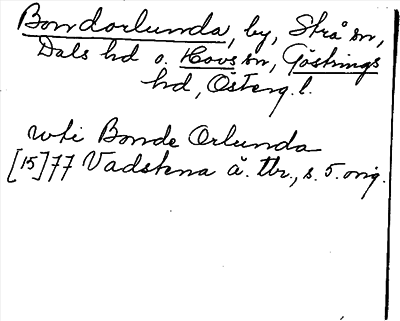 Bondorlunda, by, Strå sn,
Dals hd o. Hovs sn, Göstrings
hd, Österg. l.
uti Bonde Orlunda
[15]77 Vadstena ä. tlr., s. 5. orig.